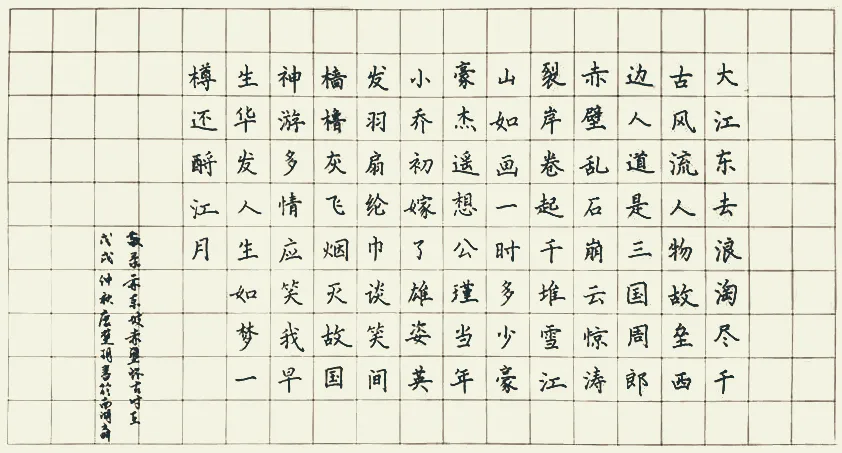 大江东去浪淘尽千
古风流人物故垒西
边人道是三国周郎
赤壁乱石崩云惊涛
裂岸卷起千堆雪江
山如画一时多少豪
豪杰遥想公瑾当年
小乔初嫁了雄姿英
发羽扇纶巾谈笑间
樯橹灰飞烟灭故国
神游多情应笑我早
生华发人生如梦一
樽还酹江月
赤壁怀古时在
戊戌仲秋书於南湖